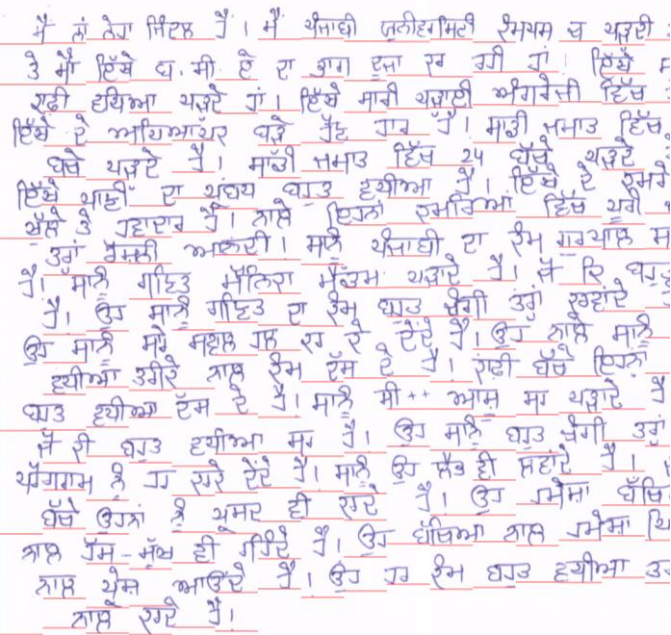 ਮੈਂ ਨਾਂ ਨੇਹਾ ਜਿੰਦਲ ਹੈ। ਮੈਂ ਪੰਜਾਬੀ ਯੂਨੀਵਰਸਿਟੀ ਕੈਮਪਸ ਚ ਪੜਦੀ
ਤੇ ਮੈਂ ਇੱਥੇ ਬੀ.ਸੀ.ਏ ਦਾ ਭਾਗ ਦੂਜਾ ਕਰ ਰਹੀ ਹਾਂ। ਇੱਥੇ
ਕਾਫੀ ਵਧਿਆ ਪੜਦੇ ਹਾਂ। ਇੱਥੇ ਸਾਰੀ ਪੜਾਈ ਅੰਗਰੇਜੀ ਵਿੱਚ
ਇੱਥੇ ਦੇ ਅਧਿਆਪਕ ਬੜੇ ਹਨ। ਸਾਡੀ ਜਮਾਤ ਵਿੱਚ
ਬੱਚੇ ਪੜਦੇ ਹੈ। ਸਾਡੀ ਜਮਾਤ ਵਿੱਚ 24 ਬੱਚੇ ਪੜਦੇ
ਇੱਥੇ ਪਾਣੀ ਦਾ ਪ੍ਰਬੰਧ ਬਹੁਤ ਵਧੀਆ ਹੈ। ਇੱਥੇ ਦੇ ਕਮਰੇ
ਖੁੱਲੇ ਤੇ ਹਵਾਦਾਰ ਹੈ। ਨਾਲੇ ਇਹਨਾਂ ਕਮਰਿਆਂ ਵਿੱਚ ਪੂਰੀ
ਤਰ੍ਹਾਂ ਰੋਸ਼ਨੀ ਆਉਂਦੀ। ਸਾਨੂੰ ਪੰਜਾਬੀ ਦਾ ਕੰਮ ਗੁਰਪਾਲ
ਹੈ। ਸਾਨੂੰ ਗਣਿਤ ਮੋਨਿਕਾ ਮੈਡਮ ਪੜਾਦੇ ਹੈ। ਜੋ ਕਿ ਬਹੁਤ
ਹੈ। ਉਹ ਸਾਨੂੰ ਗਣਿਤ ਦਾ ਕੰਮ ਬਹੁਤ ਚੰਗੀ ਤਰ੍ਹਾਂ ਕਰਵਾਂਦੇ
ਉਹ ਸਾਨੂੰ ਸਾਰੇ ਸਵਾਲ ਹਲ ਕਰ ਕੇ ਦੇਂਦੇ ਹੈ। ਉਹ ਨਾਲੇ ਸਾਨੂੰ
ਵਧੀਆ ਤਰੀਕੇ ਨਾਲ ਕੰਮ ਦੱਸ ਦੇ ਹੈ। ਕਾਫੀ ਬੱਚੇ ਇਹਨਾਂ
ਬਹੁਤ ਵਧੀਆ ਦੱਸ ਦੇ ਹੈ। ਸਾਨੂੰ ਸੀ++ ਆਸ਼ੂ ਸਰ ਪੜਾਦੇ ਹੈ
ਜੋ ਕੀ ਬਹੁਤ ਵਧੀਆ ਸਰ ਹੈ। ਉਹ ਸਾਨੂੰ ਬਹੁਤ ਚੰਗੀ ਤਰ੍ਹਾਂ
ਪ੍ਰੋਗਰਾਮ ਨੂੰ ਹਰ ਕਰਕੇ ਦੇਂਦੇ ਹੈ। ਸਾਨੂੰ ਉਹ ਲੈਬ ਵੀ ਲਵਾਂਦੇ ਹੈ।
ਬੱਚੇ ਉਹਨਾਂ ਨੂੰ ਪੂਸਰ ਵੀ ਕਰਦੇ ਹੈ। ਉਹ ਹਮੇਸ਼ਾ
ਨਾਲ ਹੱਸ-ਮੁੱਖ ਵੀ ਰਹਿੰਦੇ ਹੈ। ਉਹ ਬੱਚਿਆ ਨਾਲ ਹਮੇਸ਼ਾ
ਨਾਲ ਪੇਸ਼ ਆਉਂਦੇ ਹੈ। ਉਹ ਹਰ ਕੰਮ ਬਹੁਤ ਵਧੀਆ
ਨਾਲ ਕਰਦੇ ਹੈ।